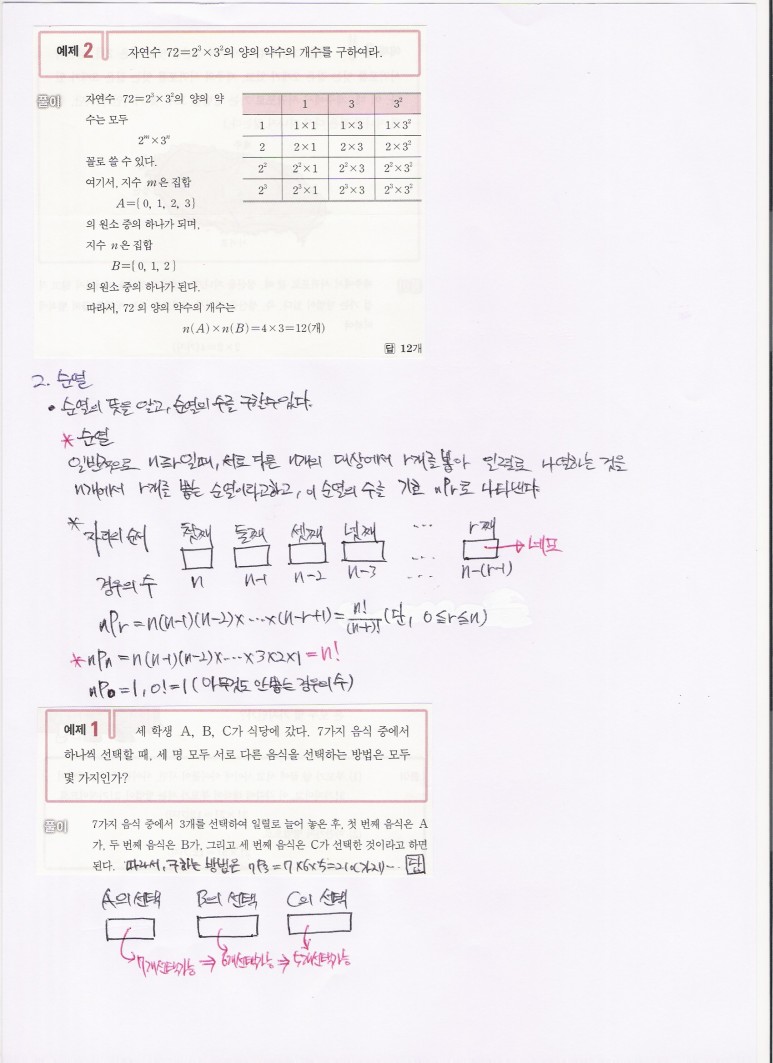 예제 2 자연수 72=2³×3²의 양의 약수의 개수를 구하여라.
풀이 자연수 72=2³×3²의 양의 약
수는 모두
2ᵐ×3ⁿ
꼴로 쓸 수 있다.
여기서, 지수 m은 집합
A={0, 1, 2, 3}
의 원소 중의 하나가 되며,
지수 n은 집합
B={0, 1, 2}
의 원소 중의 하나가 된다.
따라서, 72의 양의 약수의 개수는
n(A)×n(B)=4×3=12(개)
답 12개
1 3 3²
1 1×1 1×3 1×3²
2 2×1 2×3 2×3²
2² 2²×1 2²×3 2²×3²
2³ 2³×1 2³×3 2³×3²
2. 순열
• 순열의 뜻을 알고, 순열의 수를 구할 수 있다.
* 순열
일반적으로 n라 일때, 서로 다른 n개의 대상에서 r개를 뽑아 일렬로 나열하는 것을
n개에서 r개를 뽑는 순열이라고하고, 이 순열의 수를 기호 nPr로 나타낸다.
* 자리의 순서 첫째 둘째 셋째 넷째 ... r째
... → 네모
경우의 수 n n-1 n-2 n-3 ... n-(r-1)
nPr = n(n-1)(n-2)×...×(n-r+1) = n!/(n-r)! (단, 0≤r≤n)
* nPn = n(n-1)(n-2)×...×3×2×1 = n!
nP0 = 1, 0! = 1 (아무것도 안뽑는 경우의 수)
예제 1 세 학생 A, B, C가 식당에 갔다. 7가지 음식 중에서
하나씩 선택할 때, 세 명 모두 서로 다른 음식을 선택하는 방법은 모두
몇 가지인가?
풀이 7가지 음식 중에서 3개를 선택하여 일렬로 늘어 놓은 후, 첫 번째 음식은 A
가, 두 번째 음식은 B가, 그리고 세 번째 음식은 C가 선택한 것이라고 하면
된다. 따라서, 구하는 방법은 7P3 = 7×6×5=210(가지)... 답
A의 선택 B의 선택 C의 선택
7개선택가능 ⇒ 6개선택가능 ⇒ 5개선택가능